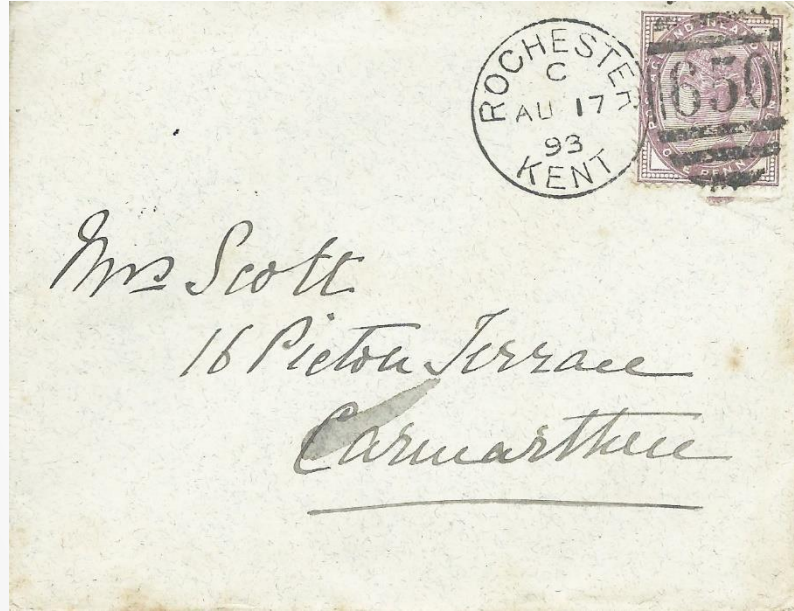 ROCHESTER
C
AU 17
93
KENT
650
Mrs Scott
16 Picton Terrace
Carmarthen